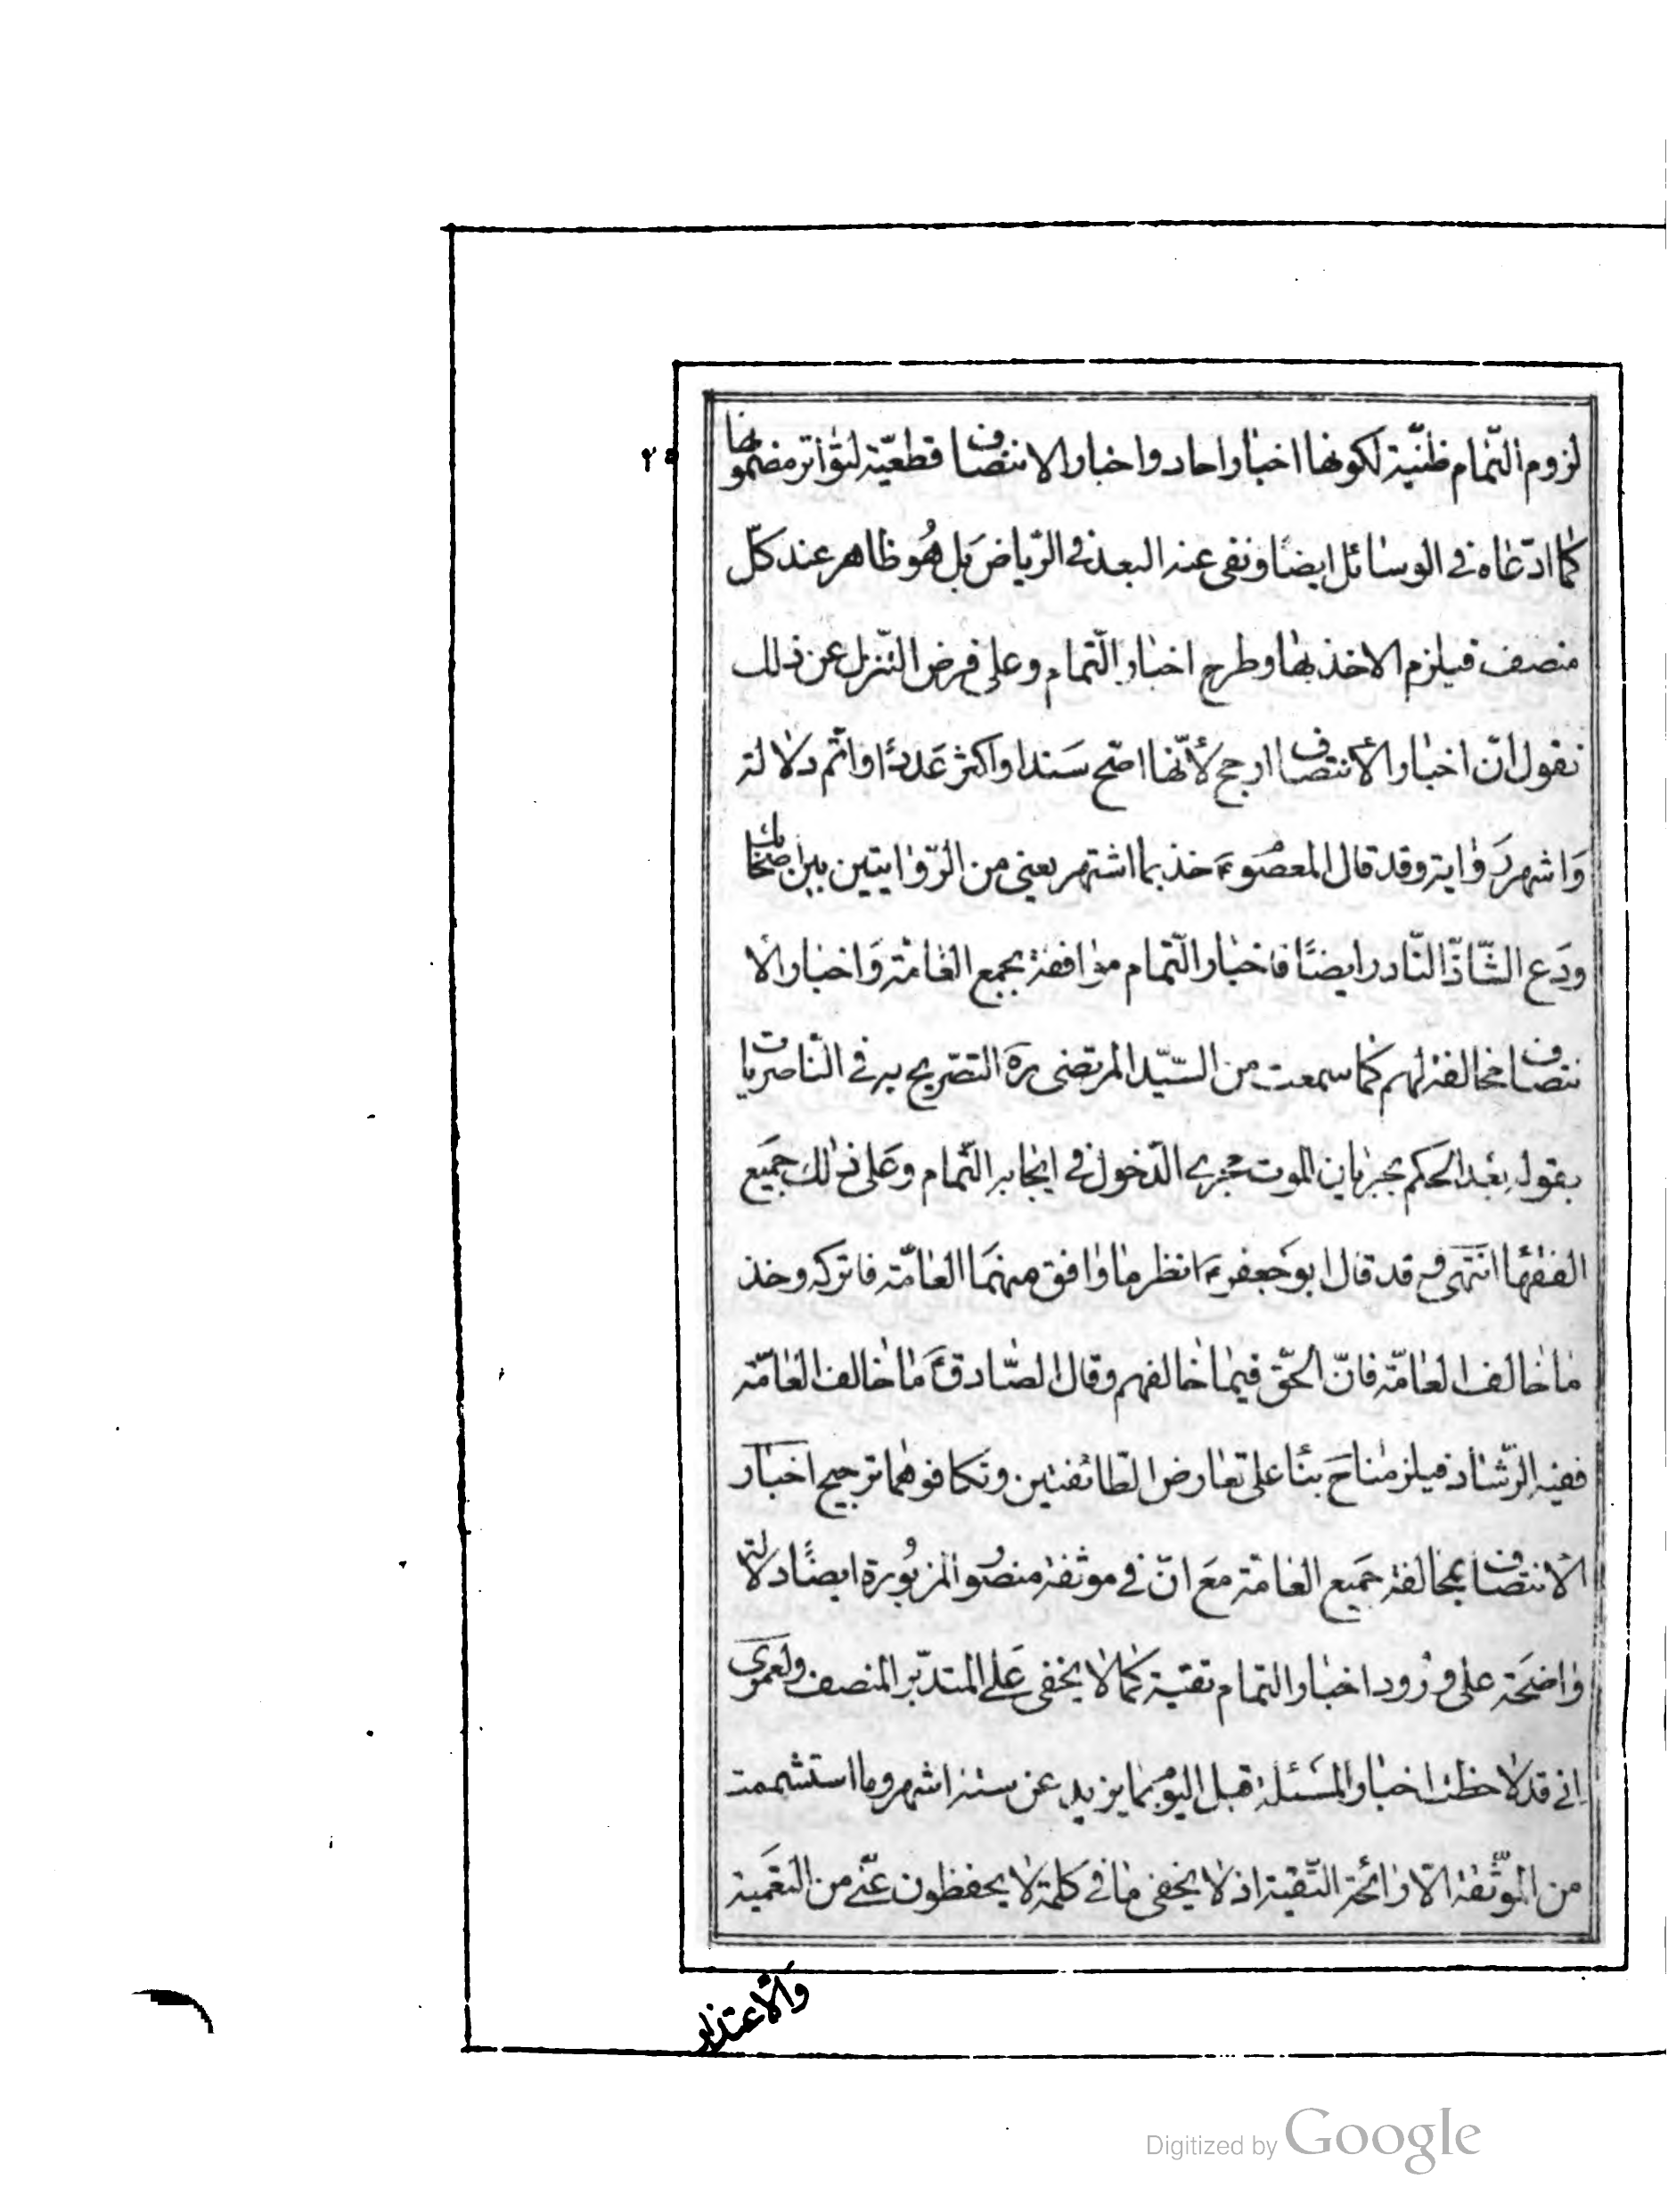 ٢٥
لزوم التّمام ظنّيّة لكونها اخبار احاد واخبار الانتصاف قطعيّة لتواتر مضمونها
كما ادّعاه في الوسائل ايضًا ونفى عنه البعد في الرّياض بل هُو ظاهر عند كلّ
منصف فيلزم الاخذ بها وطرح اخبار التّمام وعلى فرض التّنزل عن ذلك
نقول انّ اخبار الأنتصاف ارجح لأنّها اصّح سَندا واكثر عَددًا واتّم دلالة
وَاشهر رواية وقد قال المعصوم ع خذ بما اشتهر يعني من الرّوايتين بين اصحابك
ودَع الشّاذّ النّادر ايضًا فاخبار التّمام موافقة بجمع العامّة وَاخبار الا
نتصاف مخالفة لهم كما سمعت من السّيّد المرتضى ره التصّريح به في النّاصريات
بقوله بعْد الحكم بجريان الموت مجرى الدّخول في ايجابه التّمام وعَلى ذلك جَميع
الفقهاء انتهى و قد قال ابو جَعفر ع انظر ما وافق منهمَا العامّة فاتركه وخذ
ما خالف العامّة فانّ الحقّ فيما خالفهم وقال الصّادق ع مَا خالف العامّة
ففيه الرّشاد فيلزمنا حَ بنًا على تعارض الطّائفتين وتكافوهما ترجيح اخبَار
الأنتصاف بمخالفة جَميع العامّة معَ انّ في موثقة منصُور المزبُورة ايضًا دلالة
واضحَة على ورُود اخبار التمام تقيّة كما لا يخفى عَلى المتدبّر المنصف ولعمرَي
اِني قد لاحظت اخبار المسَئلة قبل اليوم بما يزيد عن ستة اشهر وما استشممت
من الموَثّقة الّا رائحة التّقيّة اذ لا يخفى ما في كلمة لا يحفظون عنّي من التعَمية
وَالاعتذار
Digitized by Google